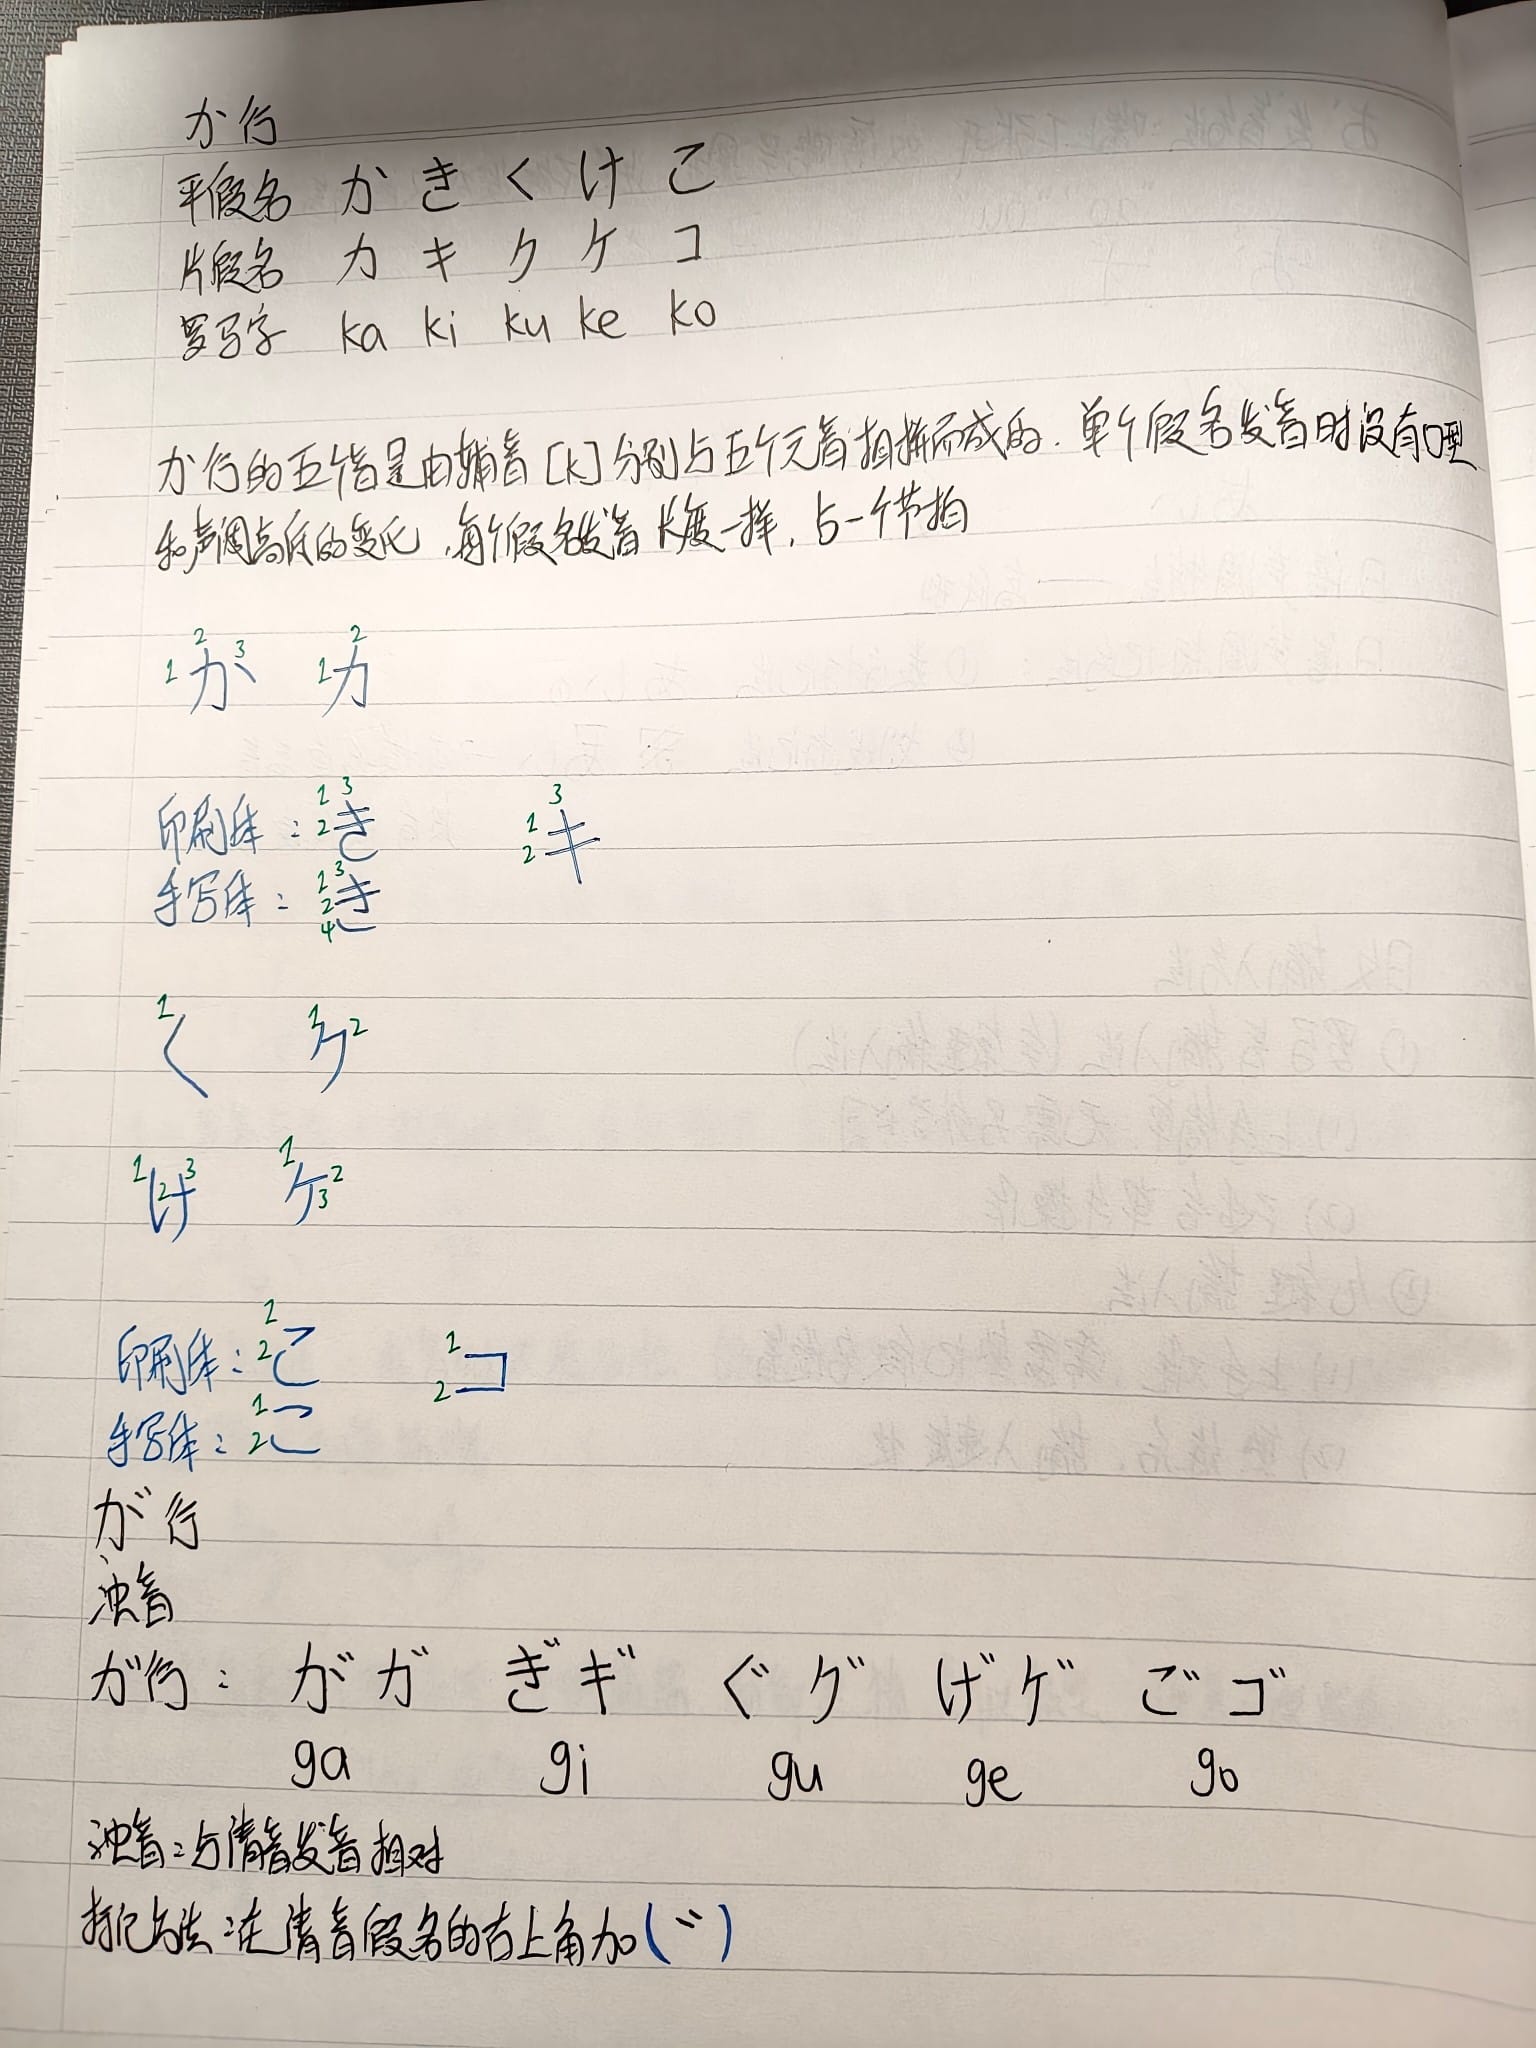 か行
平假名 か き く け こ
片假名 カ キ ク ケ コ
罗马字 ka ki ku ke ko
か行的五个音是由辅音[k]分别与五个元音相拼而成的.单个假名发音时没有口型
和声调高低的变化,每个假名发音长度一样,占一个节拍
1 2 3 か 1 2 カ
印刷体: 1 2 3 き 1 2 3 キ
手写体: 1 2 3 4 き
1 く 1 2 ク
1 2 3 け 1 2 3 ケ
印刷体: 1 2 こ 1 2 コ
手写体: 1 2 こ
が行
浊音
が行: が ガ ぎ ギ ぐ グ げ ゲ ご ゴ
ga gi gu ge go
浊音:与清音发音相对
标记方法:在清音假名的右上角加(゛)